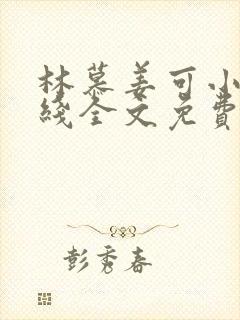 林慕姜可小
线全文免费
彭秀春